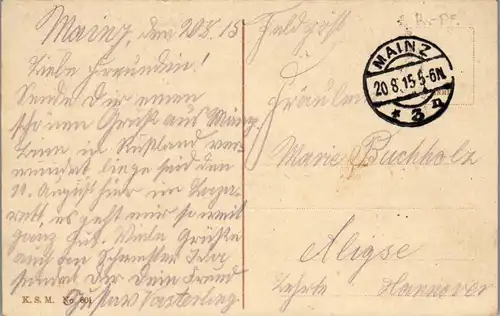 Mainz, den 20.8.15
Liebe Freundin!
Sende Dir einen
schönen Gruß aus Mainz.
Bin in Rußland ver-
wundet liege seid den
11. August hier im Laza-
rett, es geht mir so weit
ganz gut. Viele Grüße
auch an Schwester Ida
sendet Dir Dein Freund
Gustav Vasterling
K. S. M. No. 601
Feldpost
MAINZ
20.8.15 5-6N
* 3 n
Fräulein
Marie Buchholz
Aligse
Lehrte Hannover